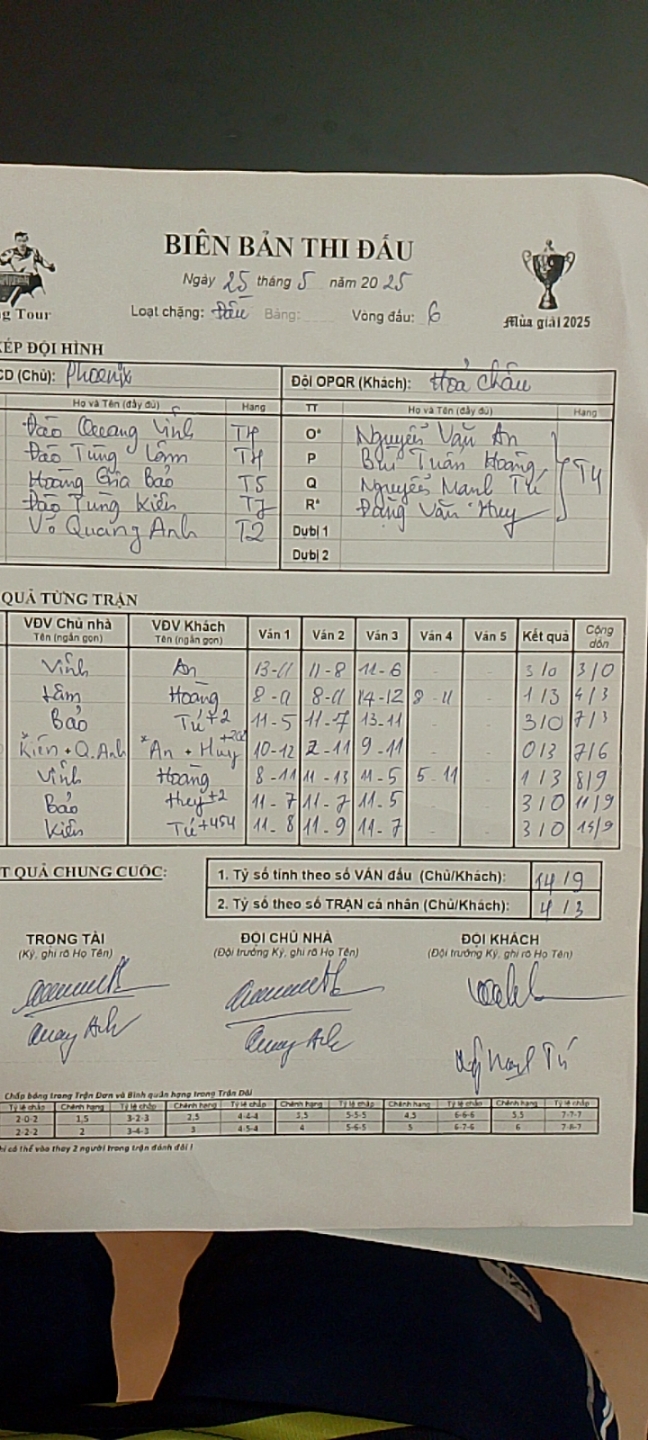 BIÊN BẢN THI ĐẤU
Ngày 25 tháng 5 năm 2025
g Tour
Loạt chặng: Đấu Bảng: Vòng đấu: 6
Mùa giải 2025
XẾP ĐỘI HÌNH
CD (Chủ): Phoenix Đội OPQR (Khách): Hoả Châu
Họ và Tên (đầy đủ) Hạng TT Họ và Tên (đầy đủ) Hạng
Đào Quang Vinh T4 O* Nguyễn Văn An
Đào Tùng Lâm T4 P Bùi Tuấn Hoàng T4
Hoàng Gia Bảo T5 Q Nguyễn Mạnh Tú
Đào Tùng Kiên T7 R* Đặng Văn Huy
Võ Quang Anh T2 Dự bị 1
Dự bị 2
QUẢ TỪNG TRẬN
VĐV Chủ nhà VĐV Khách Ván 1 Ván 2 Ván 3 Ván 4 Ván 5 Kết quả Cộng dồn
Tên (ngắn gọn) Tên (ngắn gọn)
Vinh An 13-11 11-8 11-6 3/0 3/0
Lâm Hoàng 8-11 8-11 14-12 8-11 1/3 4/3
Bảo Tú+2 11-5 11-7 13-11 3/0 7/3
*Kiên + Q.Anh *An + Huy 10-12 2-11 9-11 0/3 7/6
Vinh Hoàng 8-11 11-13 11-5 5-11 1/3 8/9
Bảo Huy+2 11-7 11-7 11-5 3/0 11/9
Kiên Tú+454 11-8 11-9 11-7 3/0 14/9
T QUẢ CHUNG CUỘC:
1. Tỷ số tính theo số VÁN đấu (Chủ/Khách): 14/9
2. Tỷ số theo số TRẬN cá nhân (Chủ/Khách): 4/3
TRỌNG TÀI ĐỘI CHỦ NHÀ ĐỘI KHÁCH
(Ký, ghi rõ Họ Tên) (Đội trưởng Ký, ghi rõ Họ Tên) (Đội trưởng Ký, ghi rõ Họ Tên)
Quang Anh Quang Anh Tú
Chấp bóng trong Trận Đơn và Bình quân hạng trong Trận Đôi
Tỷ lệ chấp Chênh hạng Tỷ lệ chấp Chênh hạng Tỷ lệ chấp Chênh hạng Tỷ lệ chấp Chênh hạng Tỷ lệ chấp Chênh hạng Tỷ lệ chấp
2-0-2 1,5 3-2-3 2,5 4-4-4 3,5 5-5-5 4,5 6-6-6 5,5 7-7-7
2-2-2 2 3-4-3 3 4-5-4 4 5-6-5 5 6-7-6 6 7-8-7
hỉ có thể vào thay 2 người trong trận đánh đôi !